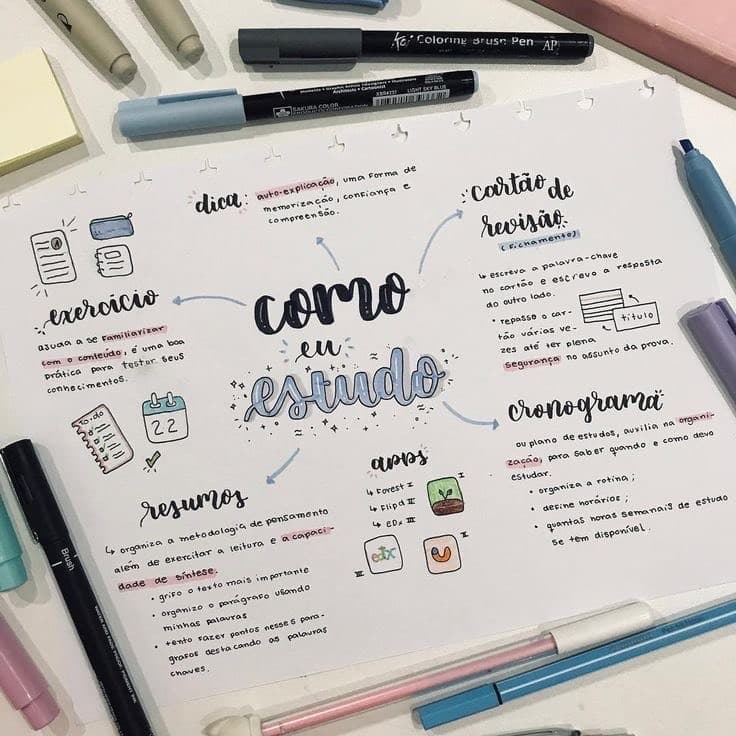 Coloring Brush Pen AP
SAKURA COLOR
LIGHT SKY BLUE
dica: auto-explicação, uma forma de
memorização, confiança e
compreensão.
cartão de
revisão
(fichamento)
↳ escreva a palavra-chave
no cartão e escrevo a resposta
do outro lado.
• repasso o car-
tão várias ve-
zes até ter plena
segurança no assunto da prova.
título
exercício
ajuda a se familiarizar
com o conteúdo, é uma boa
prática para testar seus
conhecimentos.
como
eu
estudo
to-do
22
cronograma
ou plano de estudos, auxilia na organi-
zação, para saber quando e como devo
estudar.
• organiza a rotina;
• define horários;
• quantas horas semanais de estudo
se tem disponível.
apps
↳ Forest I
↳ Flipd II
↳ EDX III
I
edX
III
II
resumos
↳ organiza a metodologia de pensamento
além de exercitar a leitura e a capaci-
dade de síntese.
• grifo o texto mais importante
• organizo o parágrafo usando
minhas palavras
• tento fazer pontos nesses pará-
grafos destacando as palavras
chaves.
Brush